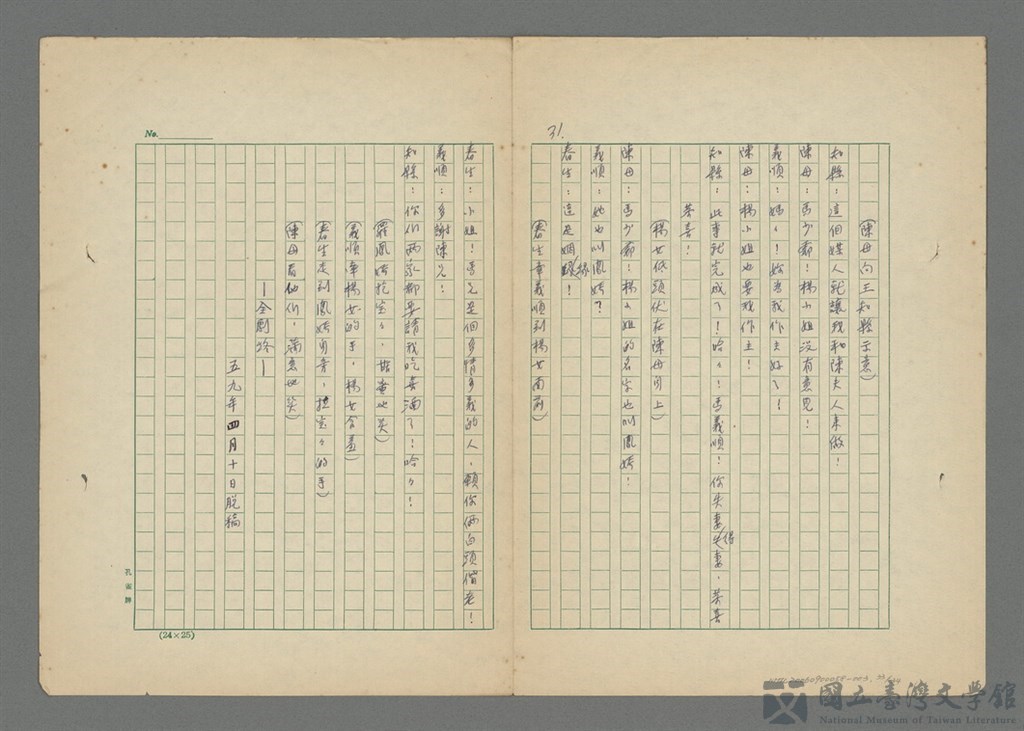 31.
(陳母向王知縣示意)
知縣：這個媒人就讓我和陳夫人來做！
陳母：馬少爺！楊小姐沒有意見！
義順：媽々！妳為我作主好了！
陳母：楊小姐也要我作主！
知縣：此事就完成了！哈々！馬義順！你失妻得妻，恭喜
恭喜！
(楊女低頭伏在陳母身上)
陳母：馬少爺！楊小姐的名字也叫鳳嬌！
義順：她也叫鳳嬌？
春生：這是姻緣！
(春生牽義順到楊女面前)
春生：小姐！馬兄是個多情多義的人，願你倆白頭偕老！
義順：多謝陳兄！
知縣：你們兩家都要請我吃喜酒了！哈々！
(羅鳳嬌抱宝々，甜蜜地笑)
(義順牽楊女的手，楊女含羞)
(春生走到鳳嬌身旁，拉宝々的手)
(陳母看他們，滿意地笑)
—全劇終—
五九年四月十日脫稿
No.
(24×25)
孔雀牌
國立臺灣文學館
National Museum of Taiwan Literature